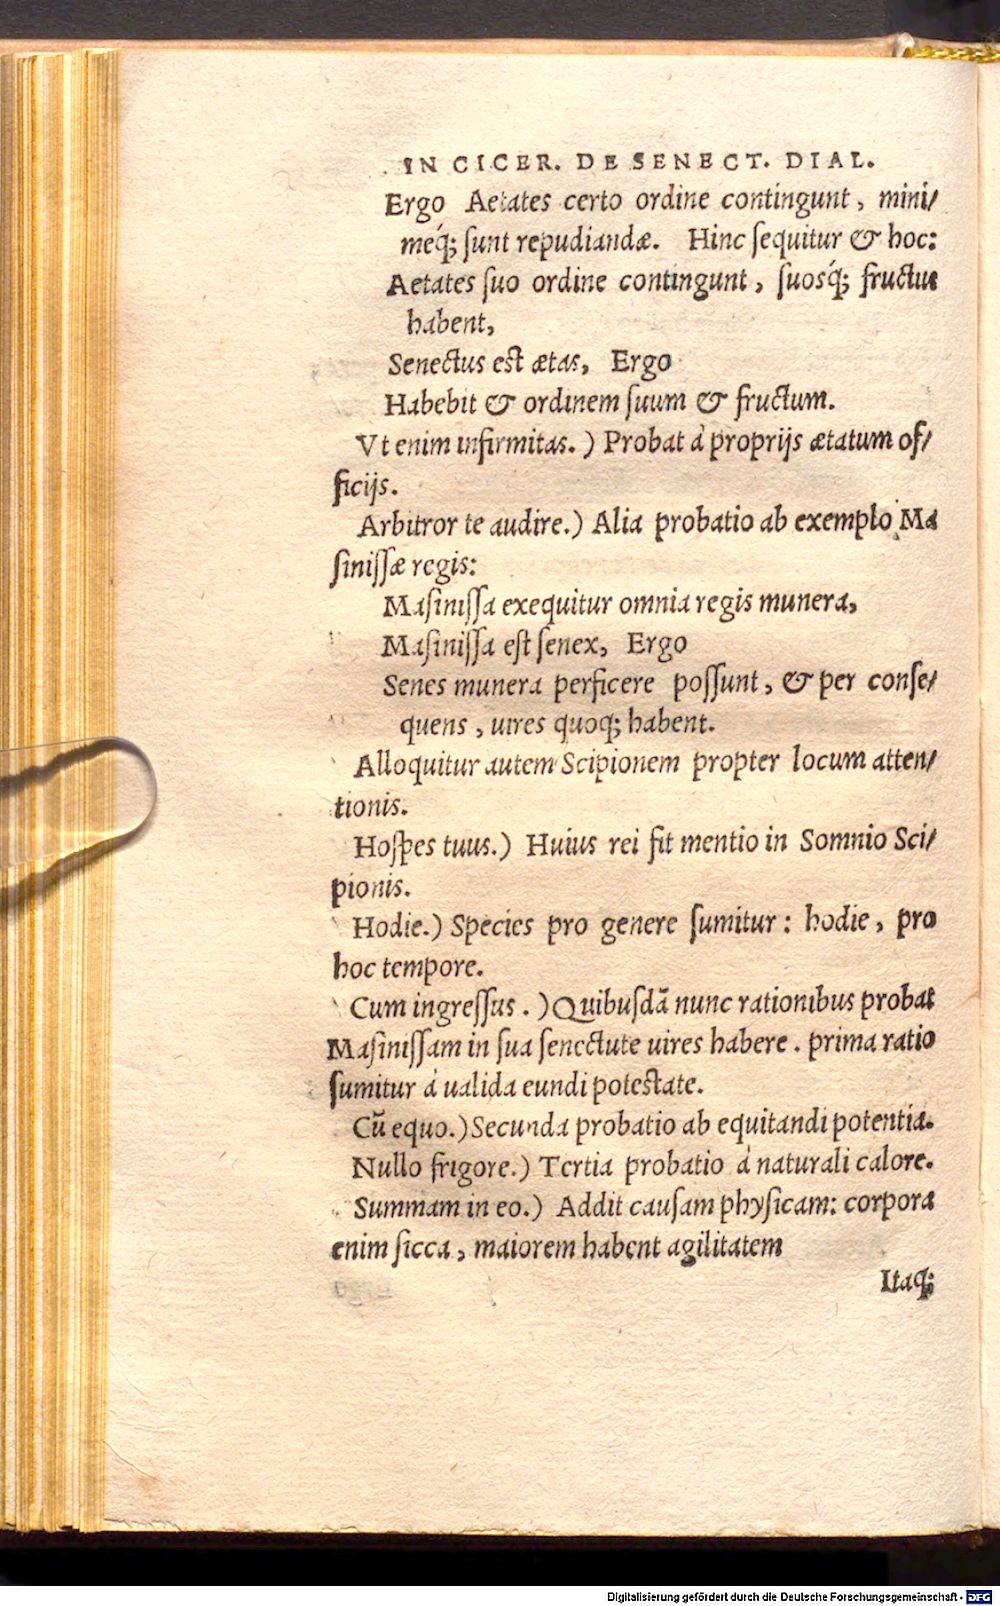 IN CICER. DE SENECT. DIAL.
Ergo Aetates certo ordine contingunt, mini/
méq; sunt repudiandæ. Hinc sequitur & hoc:
Aetates suo ordine contingunt, suosq́; fructus
habent,
Senectus est ætas, Ergo
Habebit & ordinem suum & fructum.
Vt enim infirmitas.) Probat à proprijs ætatum of/
ficijs.
Arbitror te audire.) Alia probatio ab exemplo Ma
sinissæ regis:
Masinissa exequitur omnia regis munera,
Masinissa est senex, Ergo
Senes munera perficere possunt, & per conse/
quens, uires quoq; habent.
Alloquitur autem Scipionem propter locum atten/
tionis.
Hospes tuus.) Huius rei fit mentio in Somnio Sci/
pionis.
Hodie.) Species pro genere sumitur: hodie, pro
hoc tempore.
Cum ingressus.) Quibusdã nunc rationibus probat
Masinissam in sua senectute uires habere. prima ratio
sumitur à ualida eundi potestate.
Cũ equo.) Secunda probatio ab equitandi potentia.
Nullo frigore.) Tertia probatio à naturali calore.
Summam in eo.) Addit causam physicam: corpora
enim sicca, maiorem habent agilitatem
Itaq;
Digitalisierung gefördert durch die Deutsche Forschungsgemeinschaft - DFG